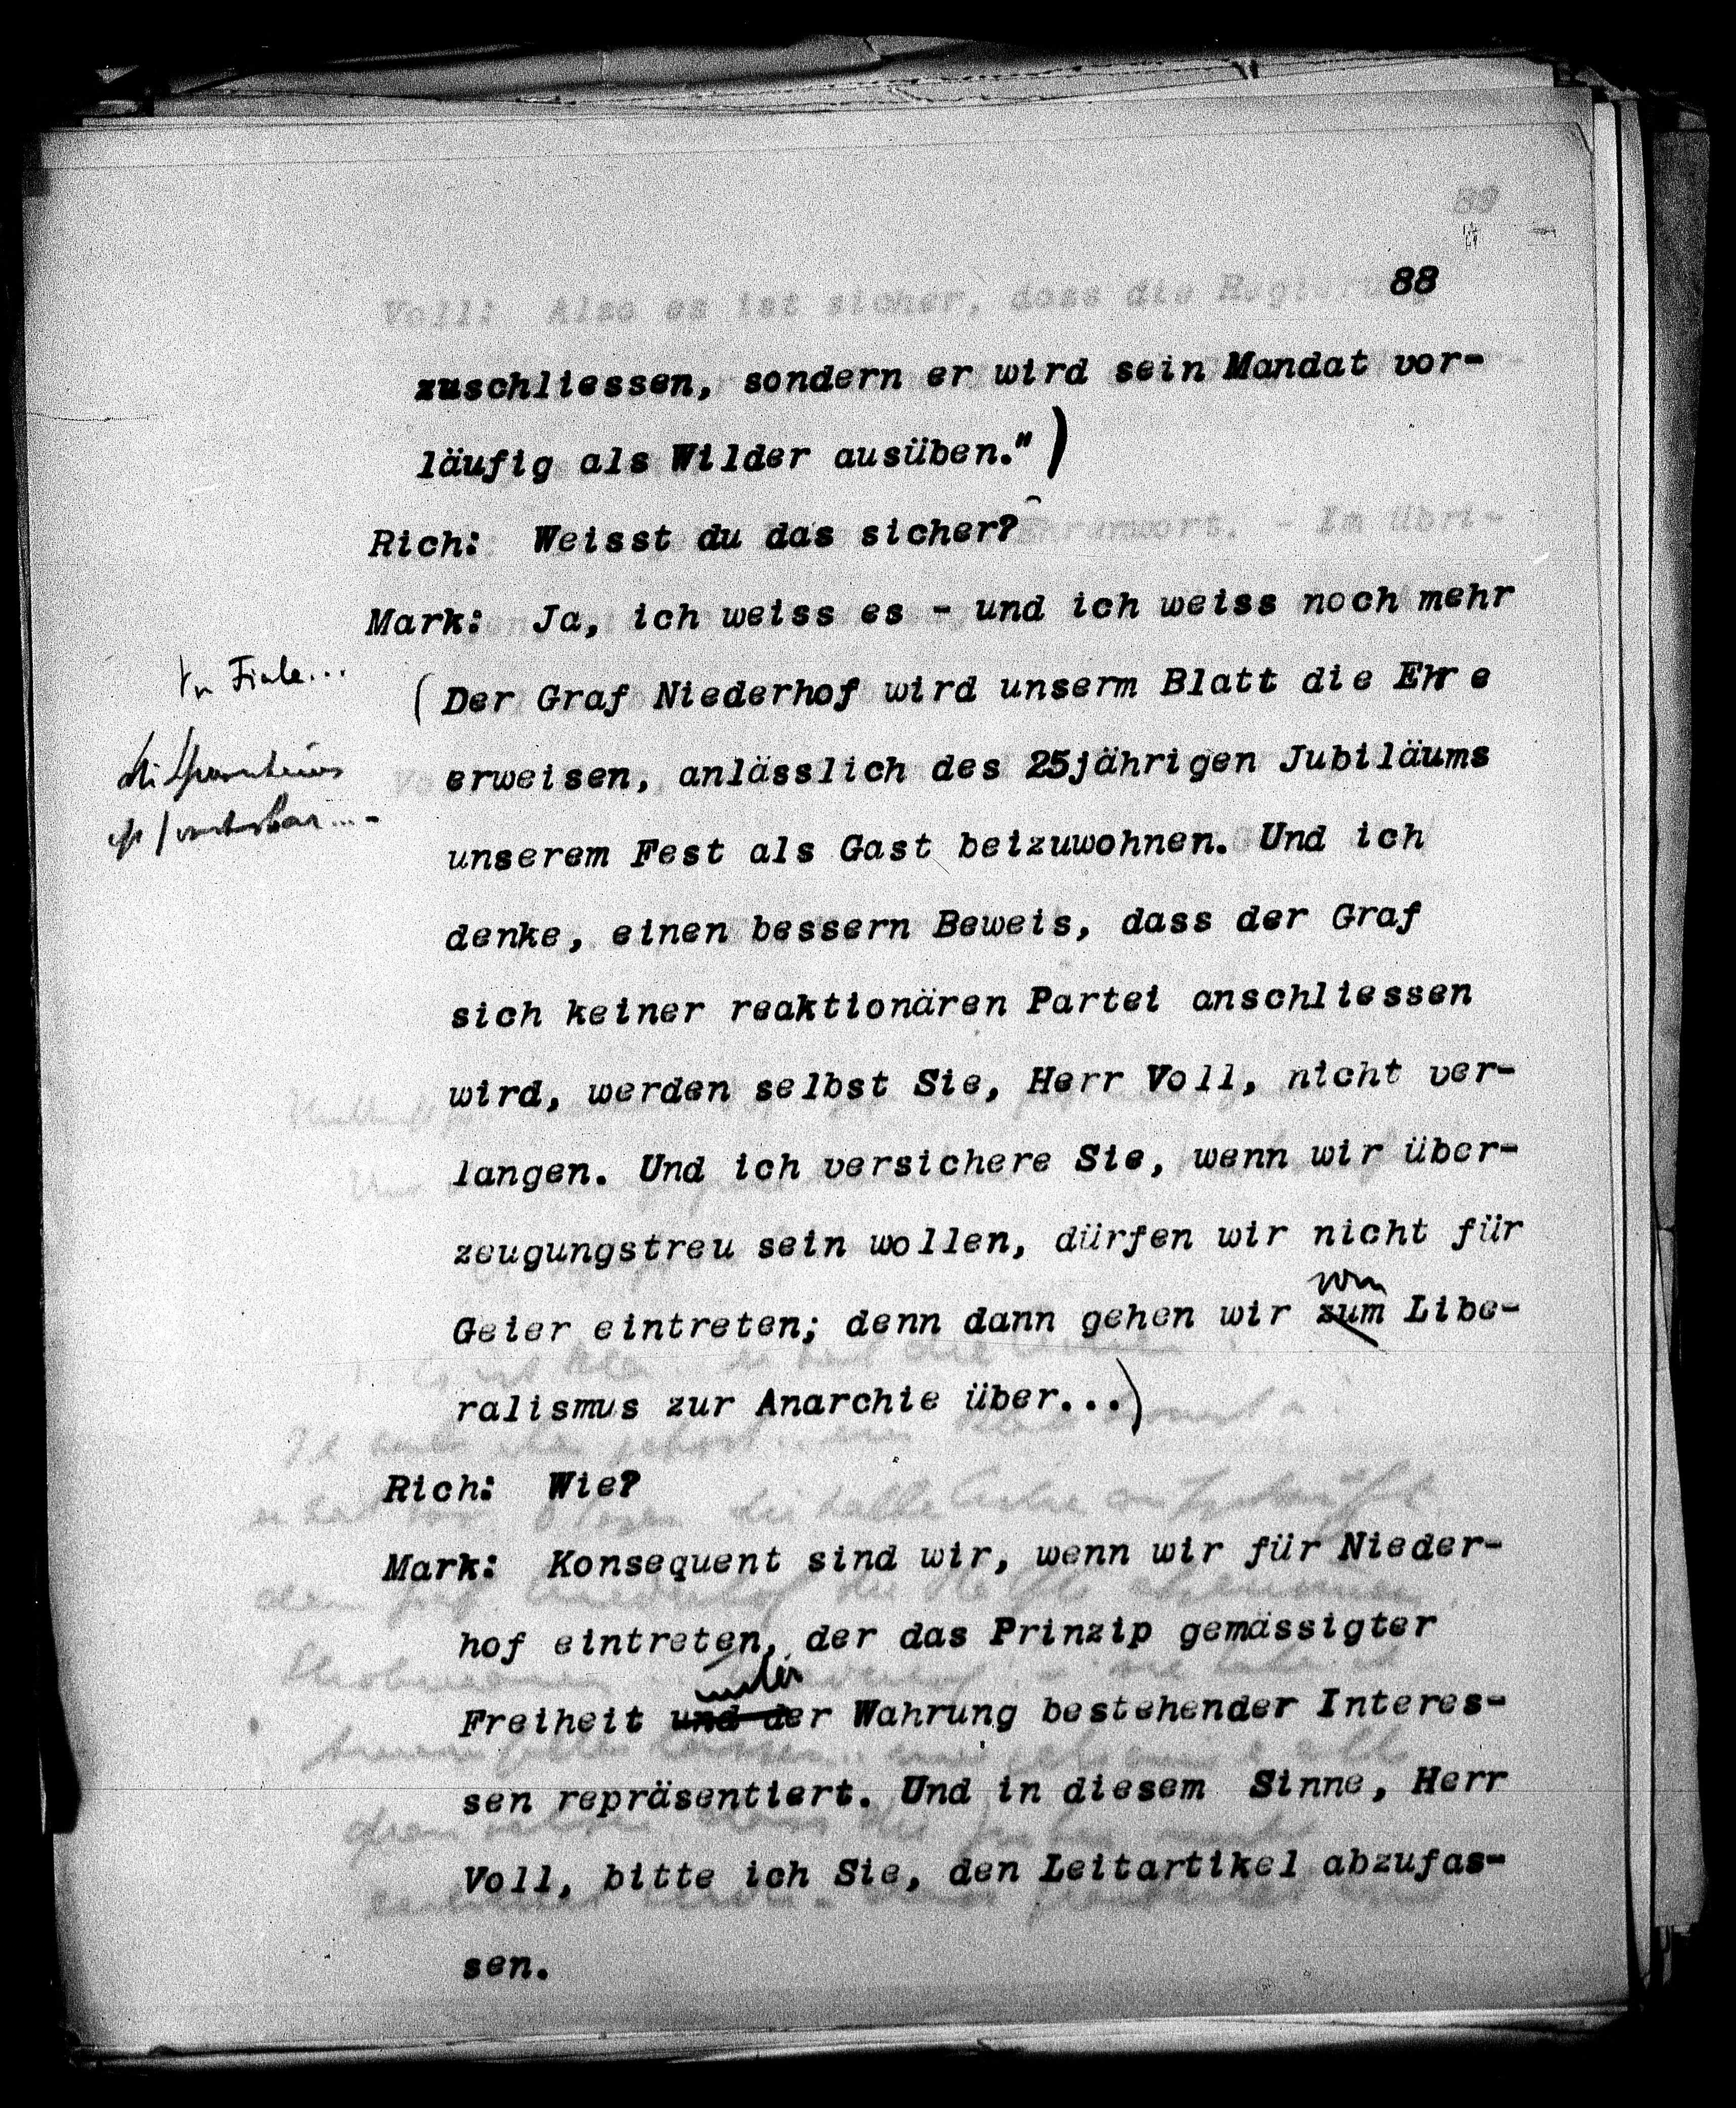 88
zuschliessen, sondern er wird sein Mandat vor-
läufig als Wilder ausüben.")
Rich: Weisst du das sicher?
Mark: Ja, ich weiss es - und ich weiss noch mehr
(Der Graf Niederhof wird unserm Blatt die Ehre
erweisen, anlässlich des 25jährigen Jubiläums
unserem Fest als Gast beizuwohnen. Und ich
denke, einen bessern Beweis, dass der Graf
sich keiner reaktionären Partei anschliessen
wird, werden selbst Sie, Herr Voll, nicht ver-
langen. Und ich versichere Sie, wenn wir über-
zeugungstreu sein wollen, dürfen wir nicht für
vom
Geier eintreten; denn dann gehen wir zum Libe-
ralismus zur Anarchie über...)
Rich: Wie?
Mark: Konsequent sind wir, wenn wir für Nieder-
hof eintreten, der das Prinzip gemässigter
unter
Freiheit und der Wahrung bestehender Interes-
sen repräsentiert. Und in diesem Sinne, Herr
Voll, bitte ich Sie, den Leitartikel abzufas-
sen.